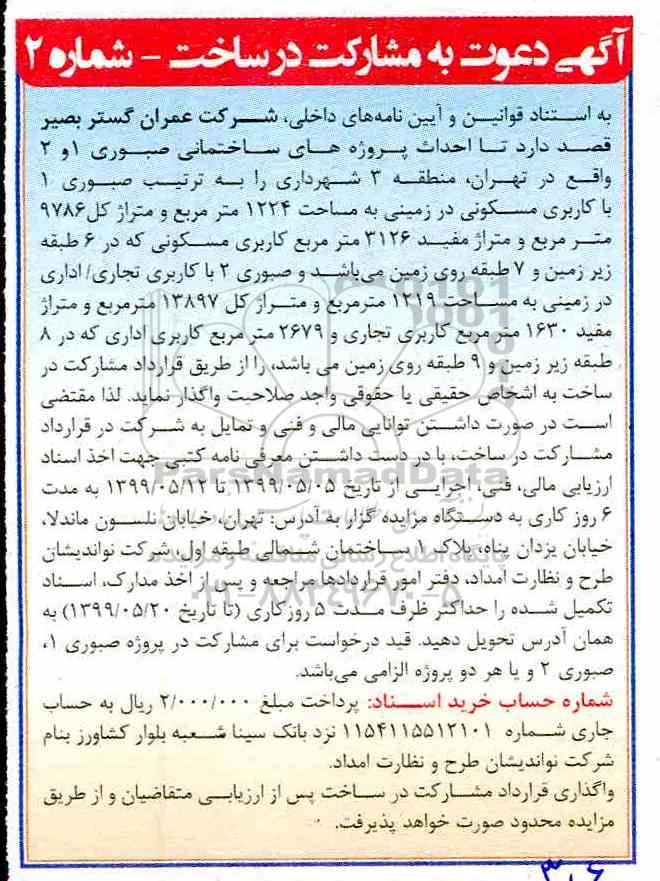 آگهی دعوت به مشارکت در ساخت – شماره ۲
به استناد قوانین و آیین نامه‌های داخلی، شرکت عمران گستر بصیر
قصد دارد تا احداث پروژه های ساختمانی صبوری ۱و ۲
واقع در تهران، منطقه ۳ شهرداری را به ترتیب صبوری ۱
با کاربری مسکونی در زمینی به مساحت ۱۲۲۴ متر مربع و متراژ کل۹۷۸۶
متر مربع و متراژ مفید ۳۱۲۶ متر مربع کاربری مسکونی که در ۶ طبقه
زیر زمین و ۷ طبقه روی زمین می‌باشد و صبوری ۲ با کاربری تجاری/ اداری
در زمینی به مساحت ۱۲۱۹ مترمربع و متراژ کل ۱۳۸۹۷ مترمربع و متراژ
مفید ۱۶۳۰ متر مربع کاربری تجاری و ۲۶۷۹ متر مربع کاربری اداری که در ۸
طبقه زیر زمین و ۹ طبقه روی زمین می باشد، را از طریق قرارداد مشارکت در
ساخت به اشخاص حقیقی یا حقوقی واجد صلاحیت واگذار نماید. لذا مقتضی
است در صورت داشتن توانایی مالی و فنی و تمایل به شرکت در قرارداد
مشارکت در ساخت، با در دست داشتن معرفی نامه کتبی جهت اخذ اسناد
ارزیابی مالی، فنی، اجرایی از تاریخ ۱۳۹۹/۰۵/۰۵ تا ۱۳۹۹/۰۵/۱۲ به مدت
۶ روز کاری به دستگاه مزایده گزار به آدرس: تهران، خیابان نلسون ماندلا،
خیابان یزدان پناه، پلاک ۱ ساختمان شمالی طبقه اول، شرکت نواندیشان
طرح و نظارت امداد، دفتر امور قراردادها مراجعه و پس از اخذ مدارک، اسناد
تکمیل شده را حداکثر ظرف مدت ۵ روزکاری (تا تاریخ ۱۳۹۹/۰۵/۲۰) به
همان آدرس تحویل دهید. قید درخواست برای مشارکت در پروژه صبوری ۱،
صبوری ۲ و یا هر دو پروژه الزامی می‌باشد.
شماره حساب خرید اسناد: پرداخت مبلغ ۲/۰۰۰/۰۰۰ ریال به حساب
جاری شماره ۱۱۵۴۱۱۵۵۱۲۱۰۱ نزد بانک سینا شعبه بلوار کشاورز بنام
شرکت نواندیشان طرح و نظارت امداد.
واگذاری قرارداد مشارکت در ساخت پس از ارزیابی متقاضیان و از طریق
مزایده محدود صورت خواهد پذیرفت.
ParsNamadData
پایگاه اطلاع رسانی مناقصه و مزایده
۰۲۱-۸۸۳۴۹۶۷۰-۵